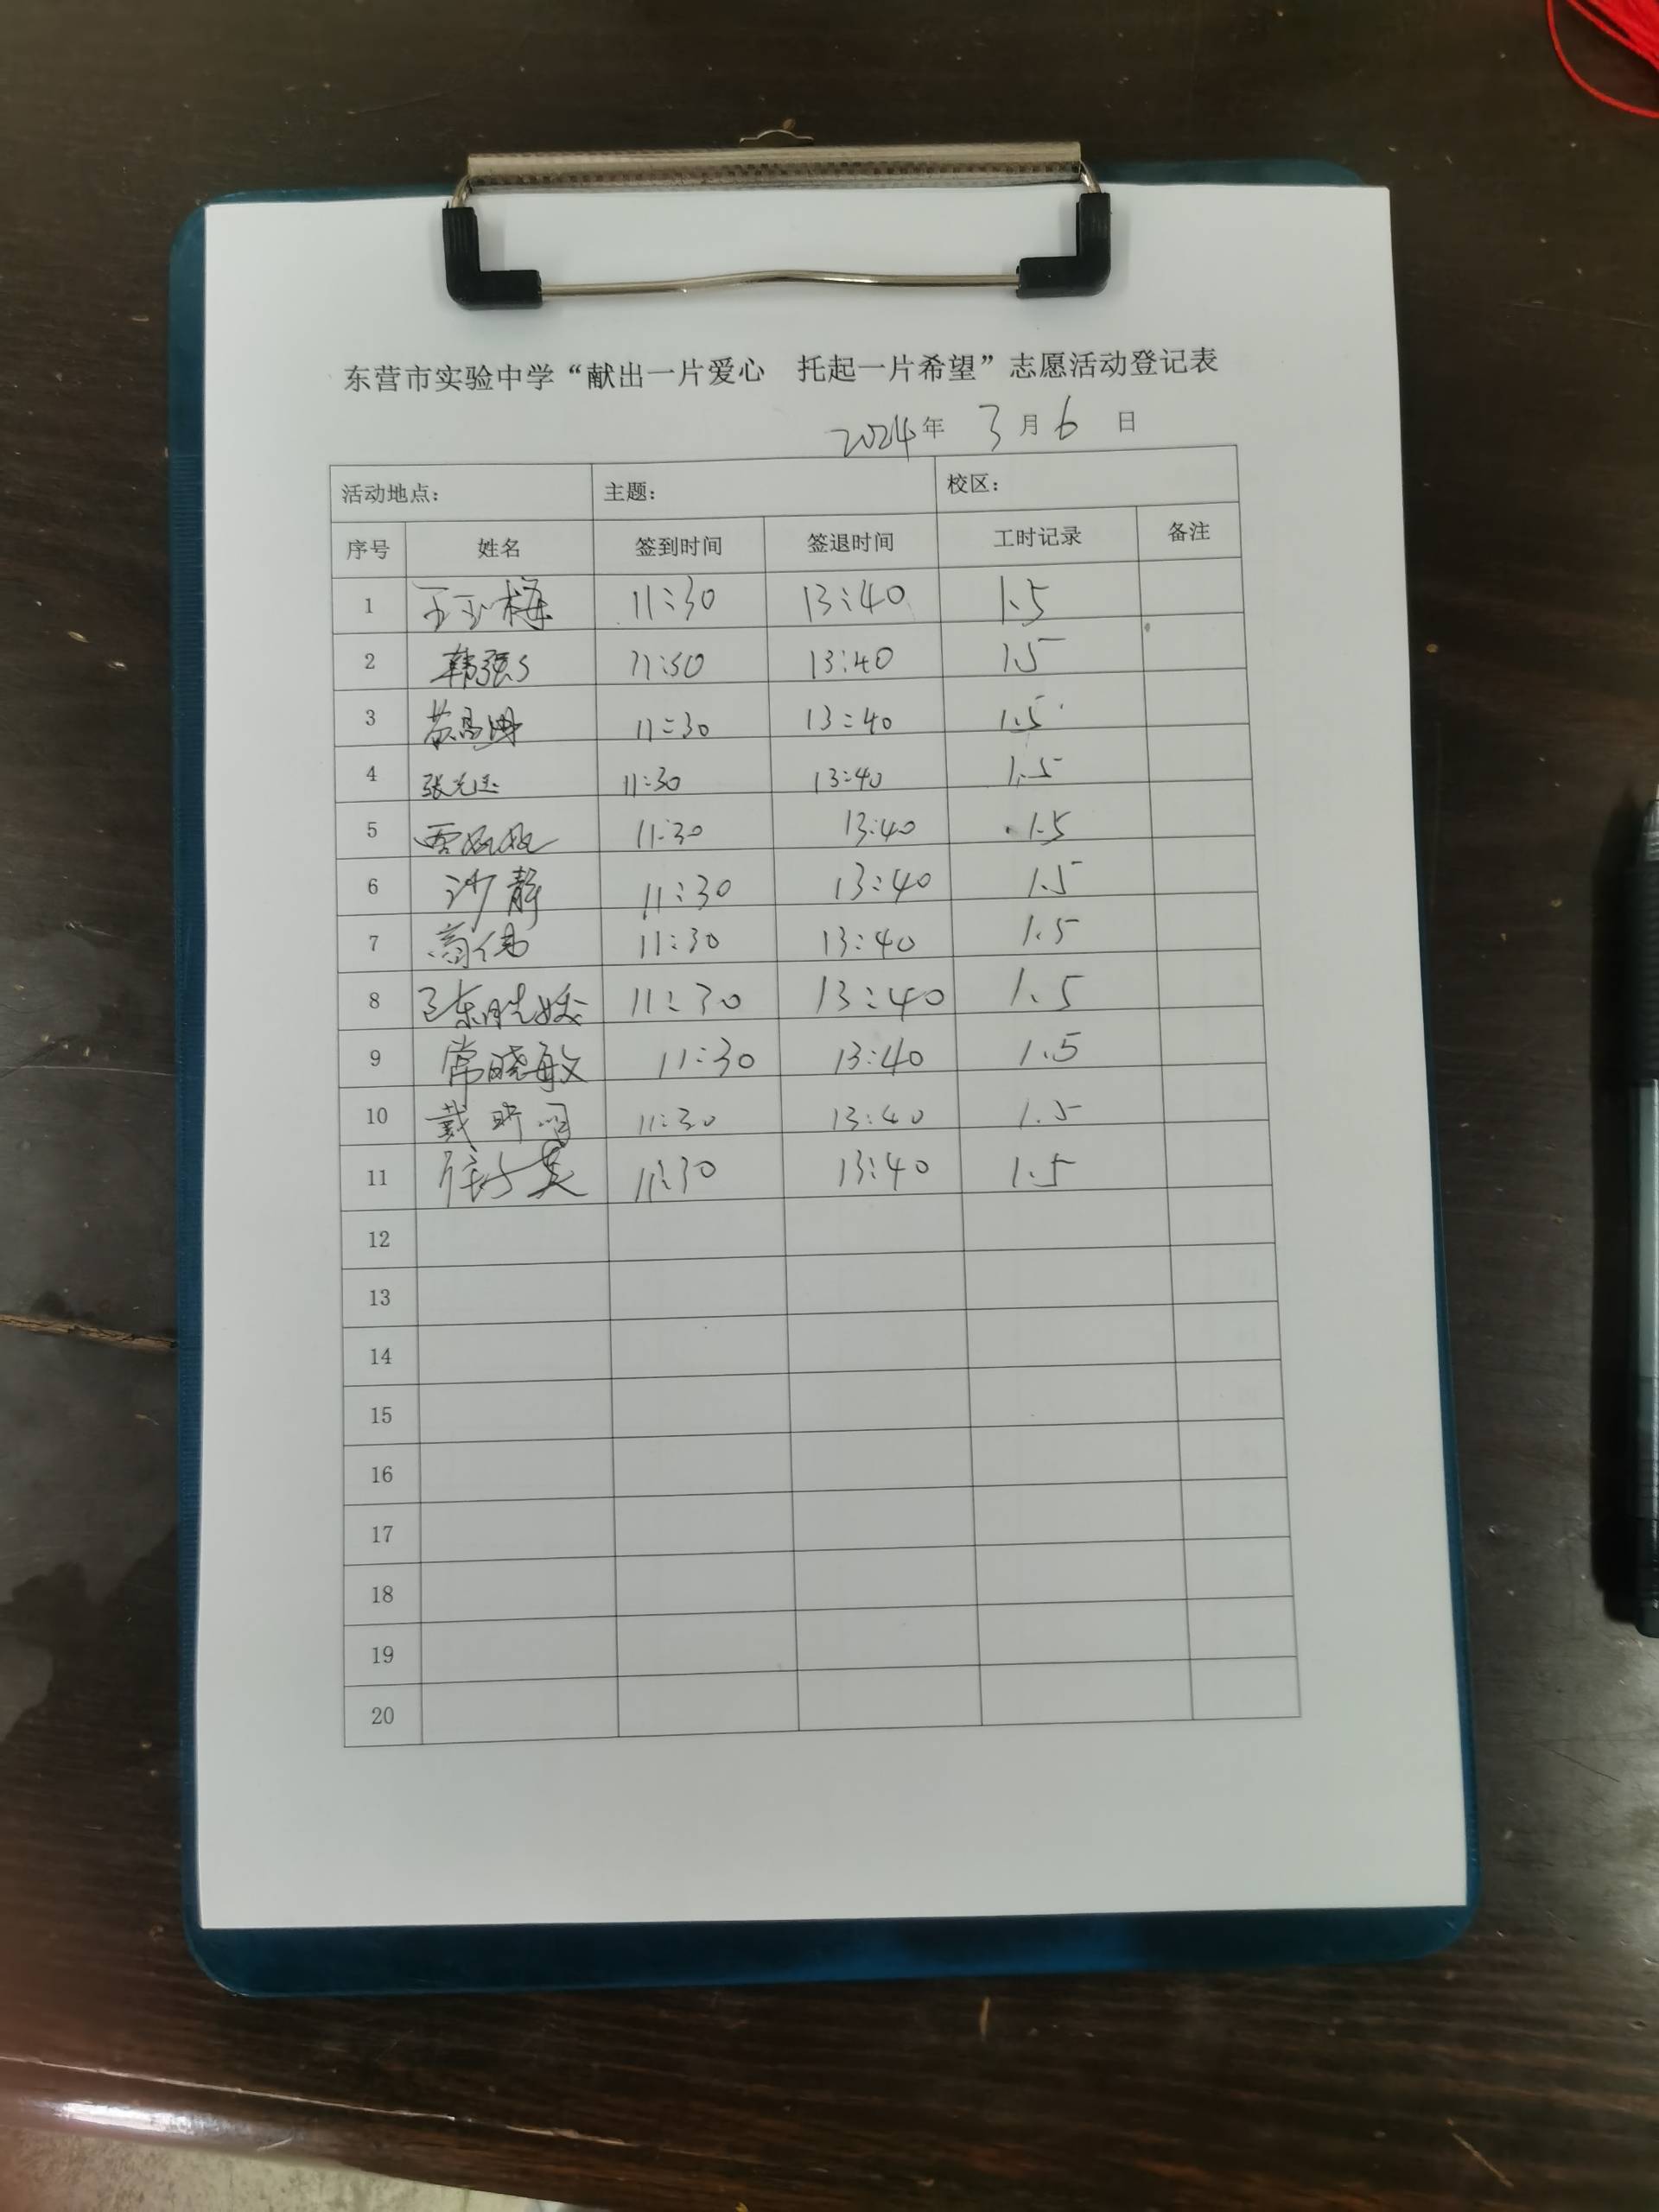 东营市实验中学“献出一片爱心 托起一片希望”志愿活动登记表
2024年 3月6 日
活动地点： 主题： 校区：
序号 姓名 签到时间 签退时间 工时记录 备注
1 王玉梅 11:30 13:40 1.5
2 11:30 13:40 1.5
3 11:30 13:40 1.5
4 11:30 13:40 1.5
5 11:30 13:40 1.5
6 沙静 11:30 13:40 1.5
7 高伟 11:30 13:40 1.5
8 11:30 13:40 1.5
9 常晓敏 11:30 13:40 1.5
10 11:30 13:40 1.5
11 11:30 13:40 1.5
12
13
14
15
16
17
18
19
20